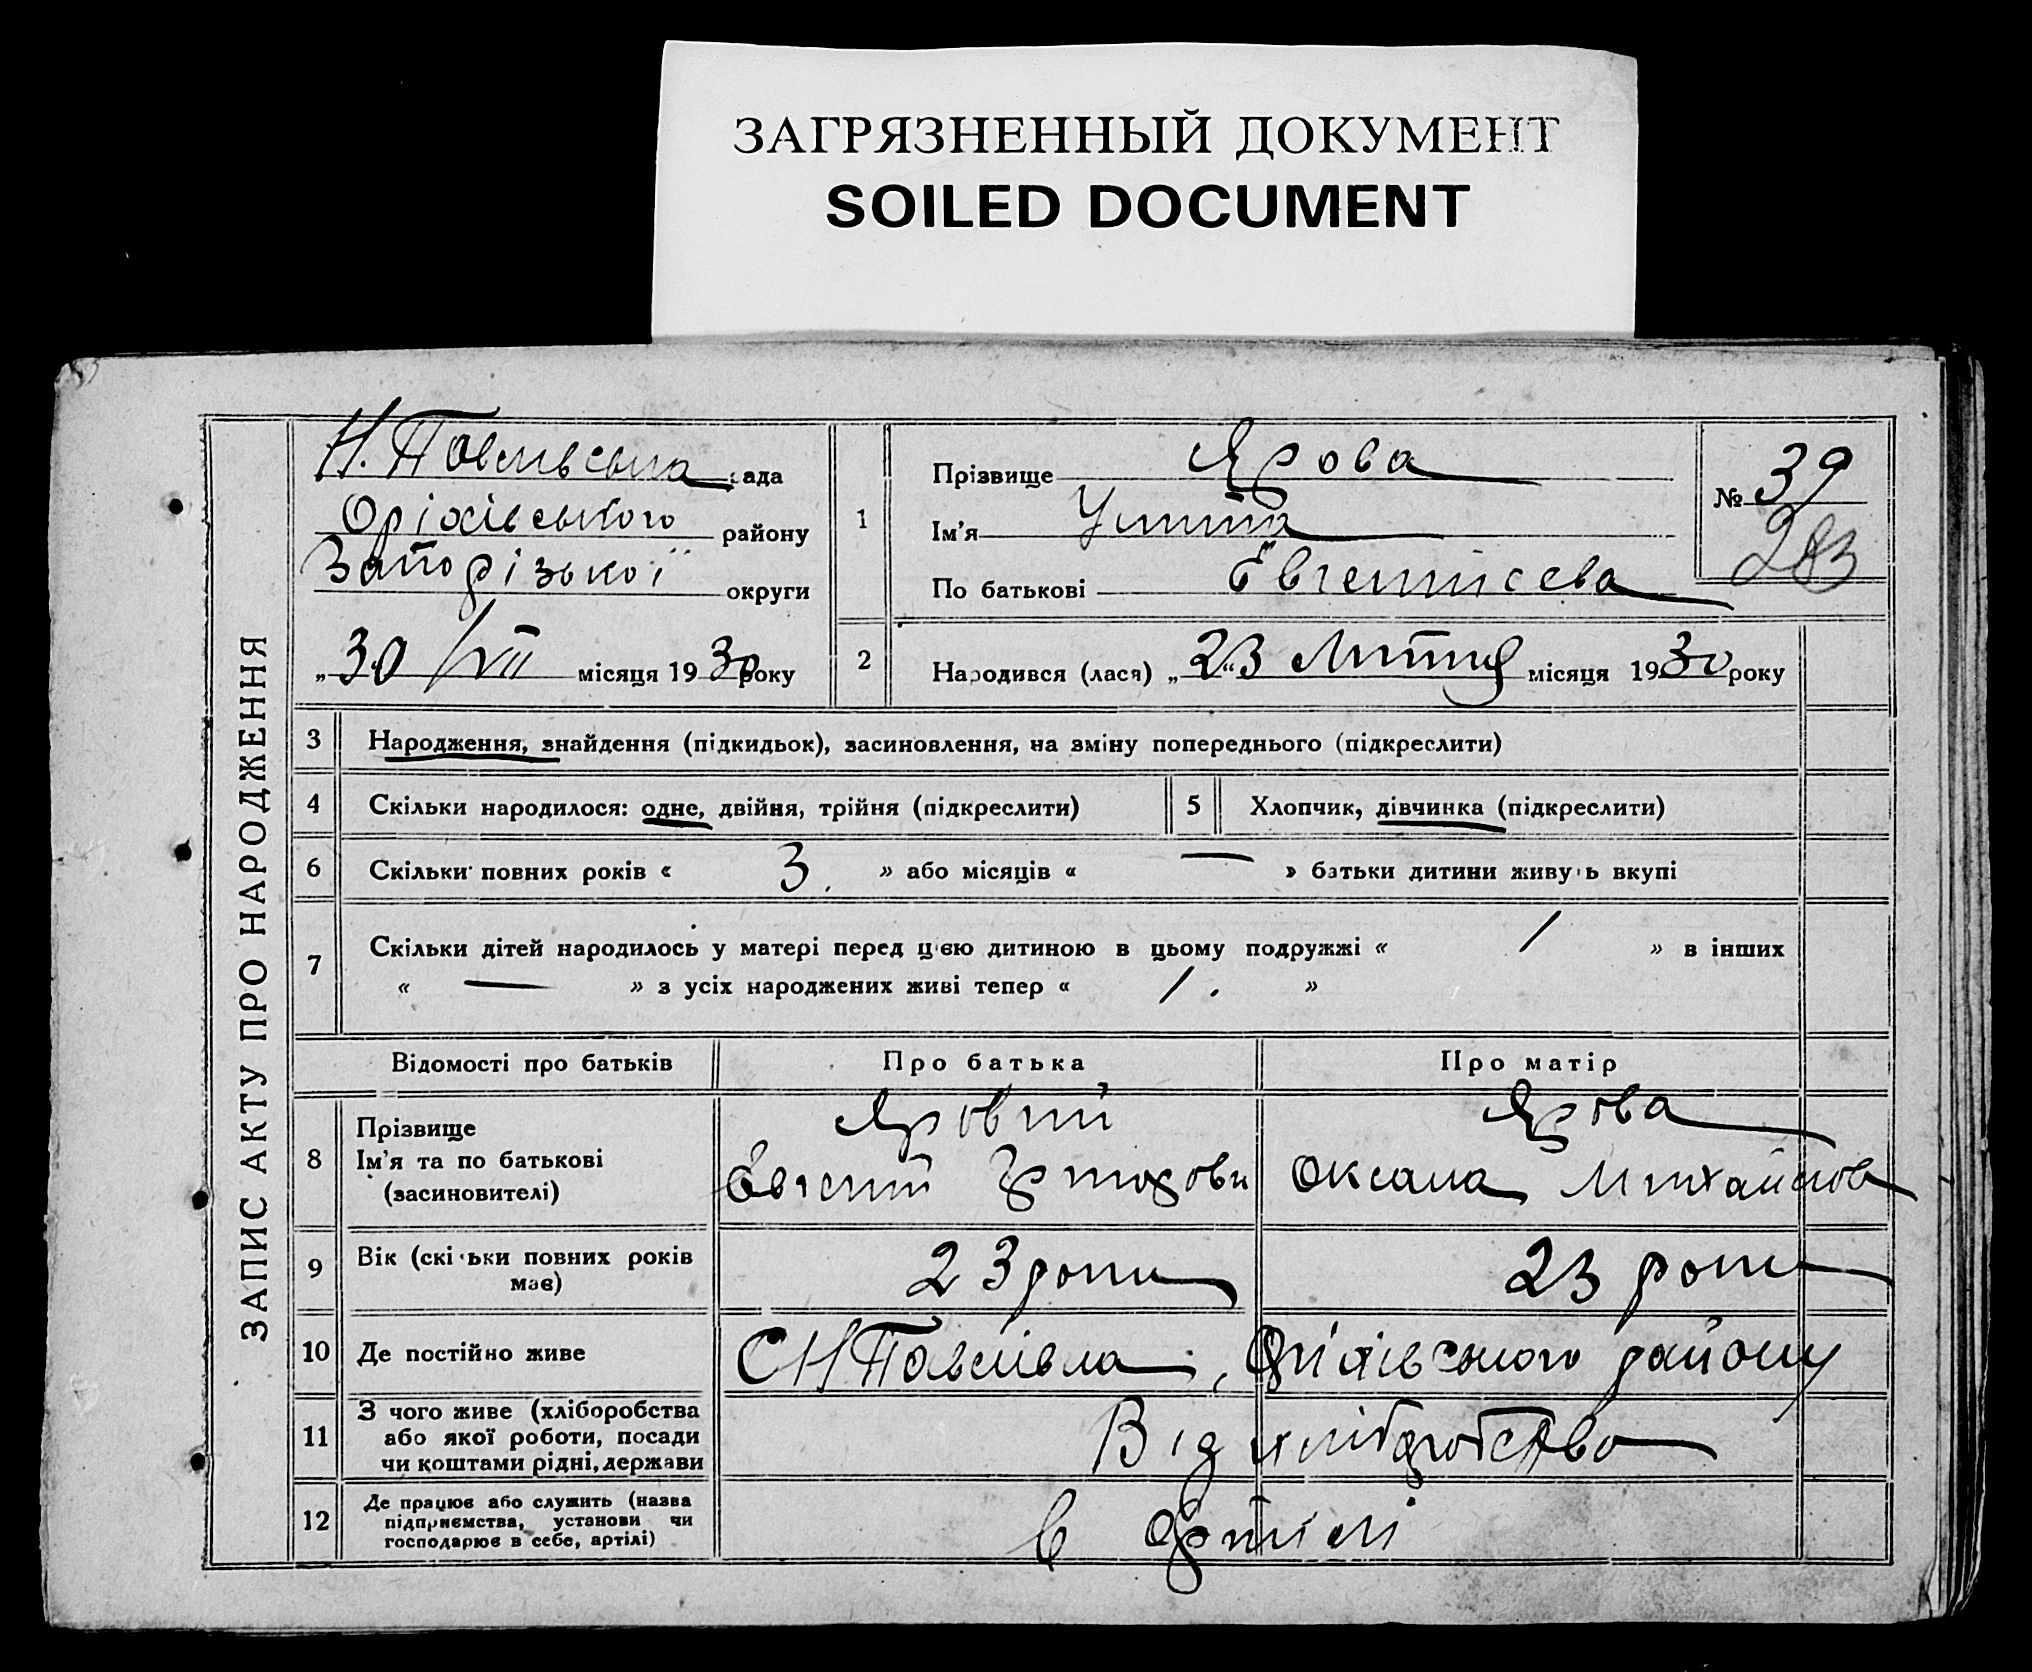 ЗАГРЯЗНЕННЫЙ ДОКУМЕНТ
SOILED DOCUMENT
ЗАПИС АКТУ ПРО НАРОДЖЕННЯ
Н. Павлівська рада
Оріхівського району
Запорізької округи
„30 /VII місяця 1930 року
1
Прізвище Ярова
Ім'я
По батькові Евгениєва
№ 39
283
2
Народився (лася) „23“ Лютня місяця 1930 року
3 Народження, знайдення (підкидьок), засиновлення, на зміну попереднього (підкреслити)
4 Скільки народилося: одне, двійня, трійня (підкреслити)
5 Хлопчик, дівчинка (підкреслити)
6 Скільки повних років « 3. » або місяців « — » батьки дитини живуть вкупі
7 Скільки дітей народилось у матері перед цією дитиною в цьому подружжі « 1 » в інших
« — » з усіх народжених живі тепер « 1. »
Відомості про батьків Про батька Про матір
8 Прізвище
Ім'я та по батькові
(засиновителі)
Яровий
Евгений
Ярова
Оксана Михайлов
9 Вік (скільки повних років
має)
23 роки
23 роки
10 Де постійно живе
С Н Павлівка, Оріхівського району
11 З чого живе (хліборобства
або якої роботи, посади
чи коштами рідні, держави
Від хліборобства
12 Де працює або служить (назва
підприємства, установи чи
господарює в себе, артілі)
в артілі